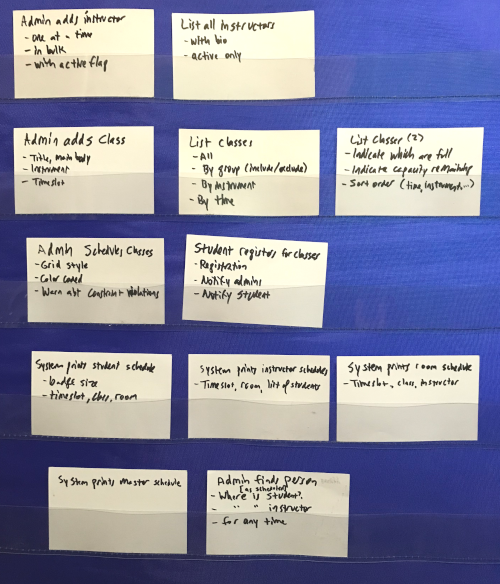 Admin adds instructor
- one at a time
- in bulk
- with active flag
List all instructors
- with bio
- active only
Admin adds Class
- Title, main body
- Instrument
- Timeslot
List classes
- All
- By group (include/exclude)
- By instrument
- By time
List Classes (2)
- Indicate which are full
- Indicate capacity remaining
- Sort order (time, instrument...)
Admin Schedules Classes
- Grid style
- Color coded
- Warn abt Constraint violations
Student registers for classes
- Registration
- Notify admins
- Notify Student
System prints student schedule
- badge size
- timeslot, class, room
System prints instructor schedules
- Timeslot, room, list of students
System prints room schedule
- Timeslot, class, instructor
System prints master schedule
Admin finds person
[as scheduled]
- Where is student?
- " " instructor
- for any time